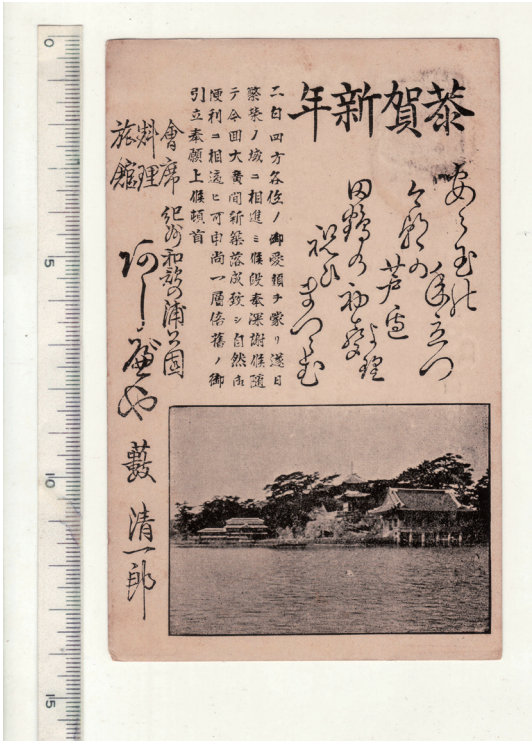 恭賀新年
田鶴の初聲
祝ひ
二白四方各位ノ御愛顧ヲ蒙リ逐日
繁榮ノ域ニ相進ミ候段奉深謝候随
テ今回大廣間新築落成致シ自然御
便利ニ相適ヒ可申尚一層倍舊ノ御
引立奉願上候頓首
會席
料理
旅館
紀州和歌の浦公園
あしべや
薮清一郎
0
5
10
15